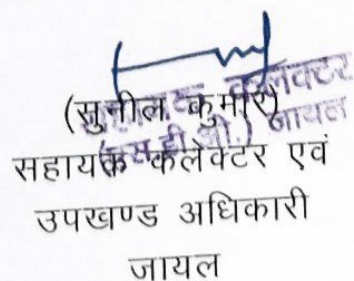 (सुनील कुमार)
सहायक कलेक्टर एवं
उपखण्ड अधिकारी
जायल
सहायक कलेक्टर
(एस.डी.ओ.) जायल